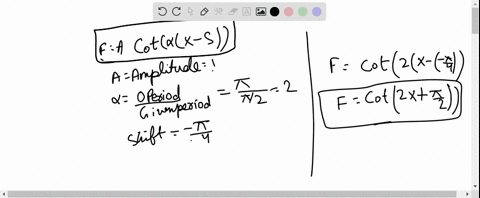 F=A Cot(α(x-S))
A=Amplitude=1
α= OPeriod/Givenperiod = π/π/2 = 2
Shift = -π/4
F = Cot(2(x-(-π/4))
F = Cot(2x+π/2))